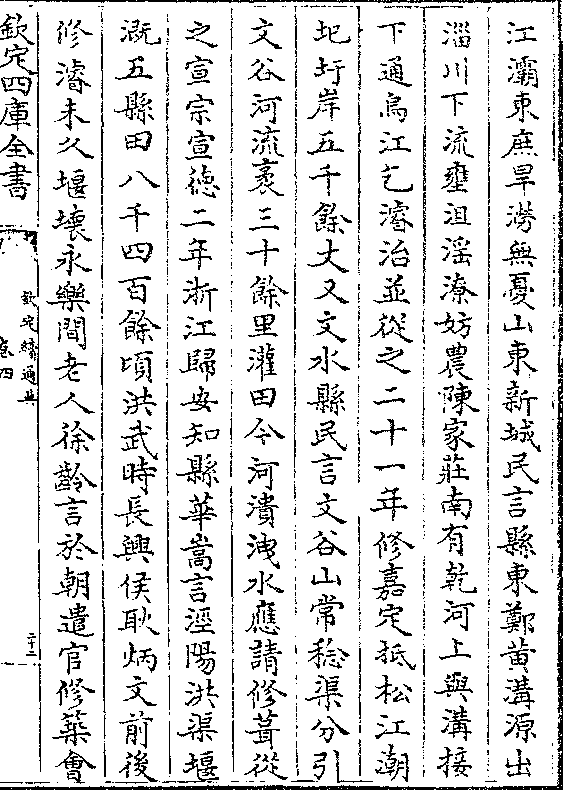 江灞東庶旱澇無憂山東新城民言縣東鄭黄溝源出
淄川下流壅沮淫潦妨農陳家莊南有乾河上與溝接
下通烏江乞濬治並從之二十一年修嘉定抵松江潮
圯圩岸五千餘丈又文水縣民言文谷山常稔渠分引
文谷河流袤三十餘里灌田今河潰洩水應請修葺從
之宣宗宣徳二年浙江歸安知縣華嵩言涇陽洪渠堰
溉五縣田八千四百餘頃洪武時長興侯耿炳文前後
修濬未久堰壊永樂間老人徐齡言於朝遣官修築會
欽定四庫全書
欽定續通典
卷四
二十三